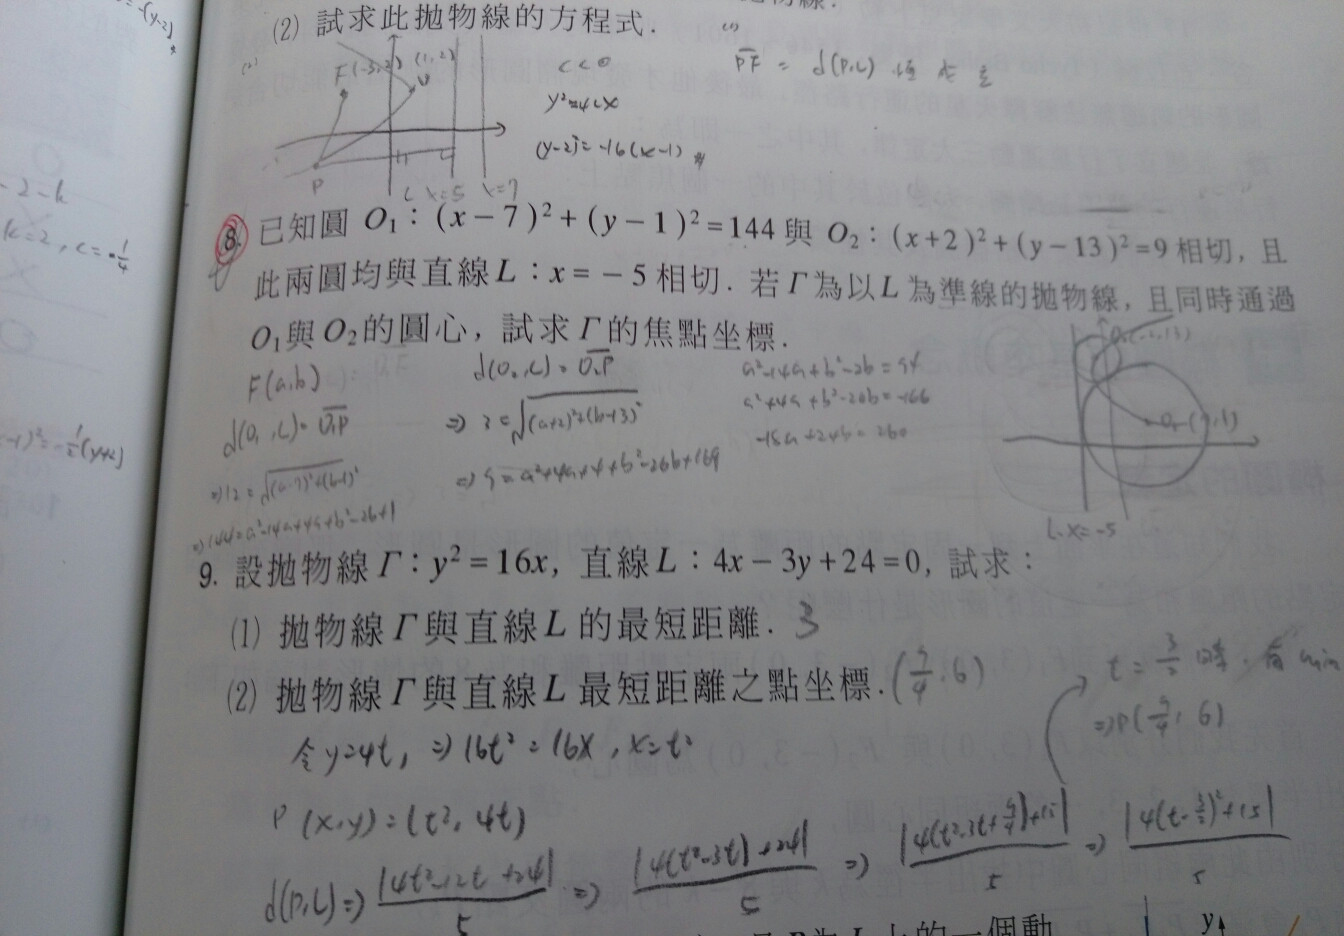 (2) 試求此拋物線的方程式.
F(-3,2) (1,2)
c<0
PF = d(P,L)
y²=4cx
(y-2)²=-16(x-1)
P
L x=5 x=7
8. 已知圓 O₁：(x-7)²+(y-1)²=144 與 O₂：(x+2)²+(y-13)²=9 相切, 且
此兩圓均與直線 L：x=-5 相切. 若 Γ 為以 L 為準線的拋物線, 且同時通過
O₁ 與 O₂ 的圓心, 試求 Γ 的焦點坐標.
F(a,b)
d(O₁,L)=O₁P
⇒12=√(a-7)²+(b-1)²
⇒144=a²-14a+49+b²-2b+1
d(O₂,L)=O₂P
⇒3=√(a+2)²+(b-13)²
⇒9=a²+4a+4+b²-26b+169
a²-14a+b²-2b=94
a²+4a+b²-26b=-166
-18a+24b=260
L:x=-5
9. 設拋物線 Γ：y²=16x, 直線 L：4x-3y+24=0, 試求：
(1) 拋物線 Γ 與直線 L 的最短距離. 3
(2) 拋物線 Γ 與直線 L 最短距離之點坐標. (9/4, 6)
t=3/2 時, 有 min
⇒P(9/4, 6)
令 y=4t, ⇒16t²=16x, x=t²
P(x,y)=(t², 4t)
d(P,L)⇒|4t²-12t+24|/5 ⇒ |4(t²-3t)+24|/5 ⇒ |4(t²-3t+9/4)+15|/5 ⇒ |4(t-3/2)²+15|/5
上的一個動
y